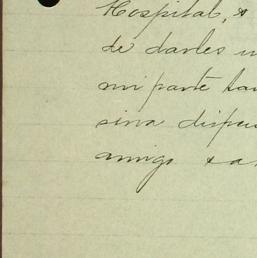 Hospital, y
de darles u
mi parte ha
sirva dispen
amigo